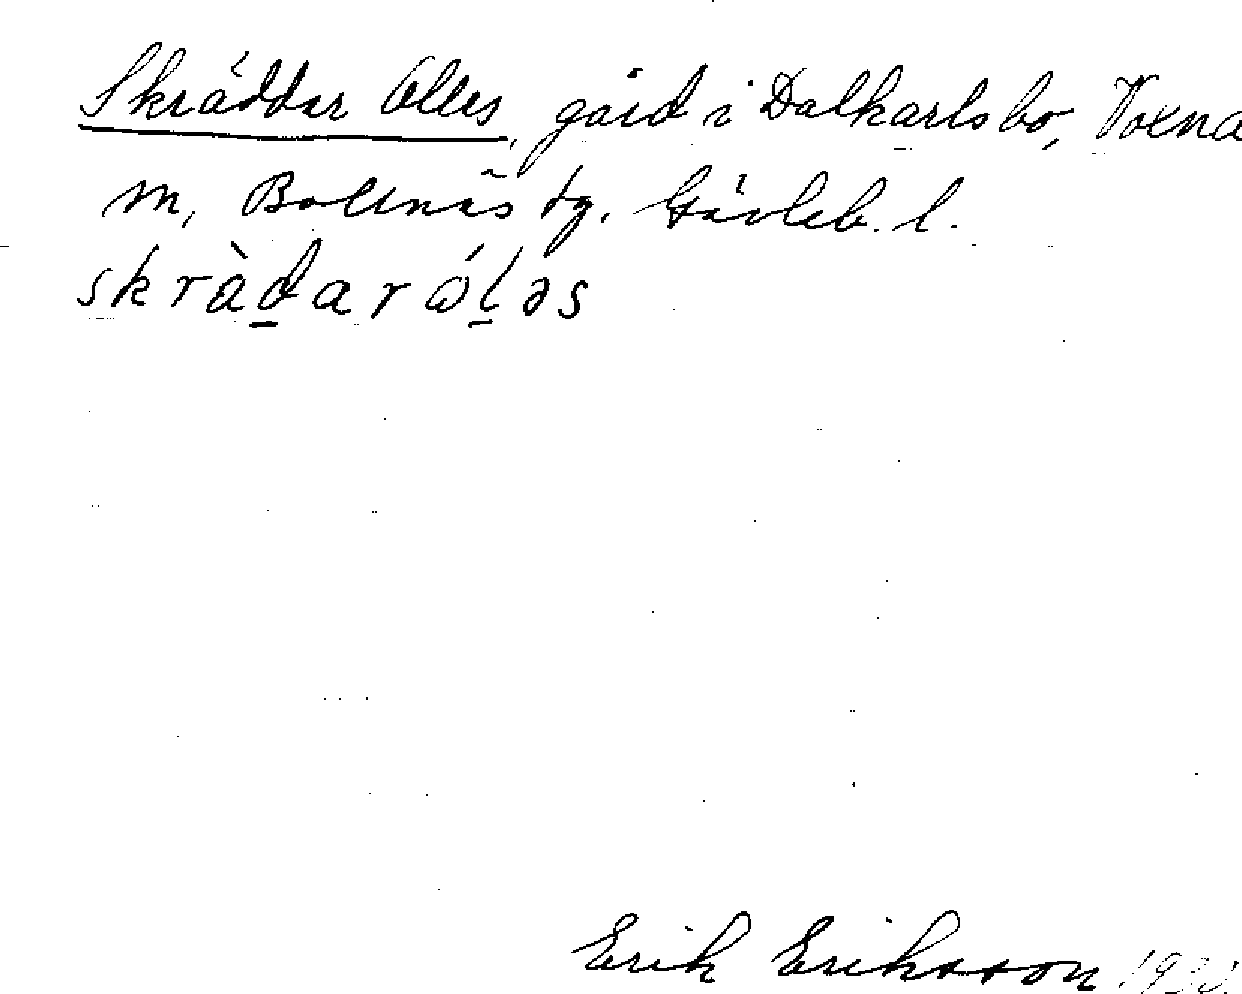 Skräddar Olles, gård i Dalkarlsbo, Voxna
m, Bollnäs tg. Gävleb. l.
skràdarólǝs
Erik Eriksson